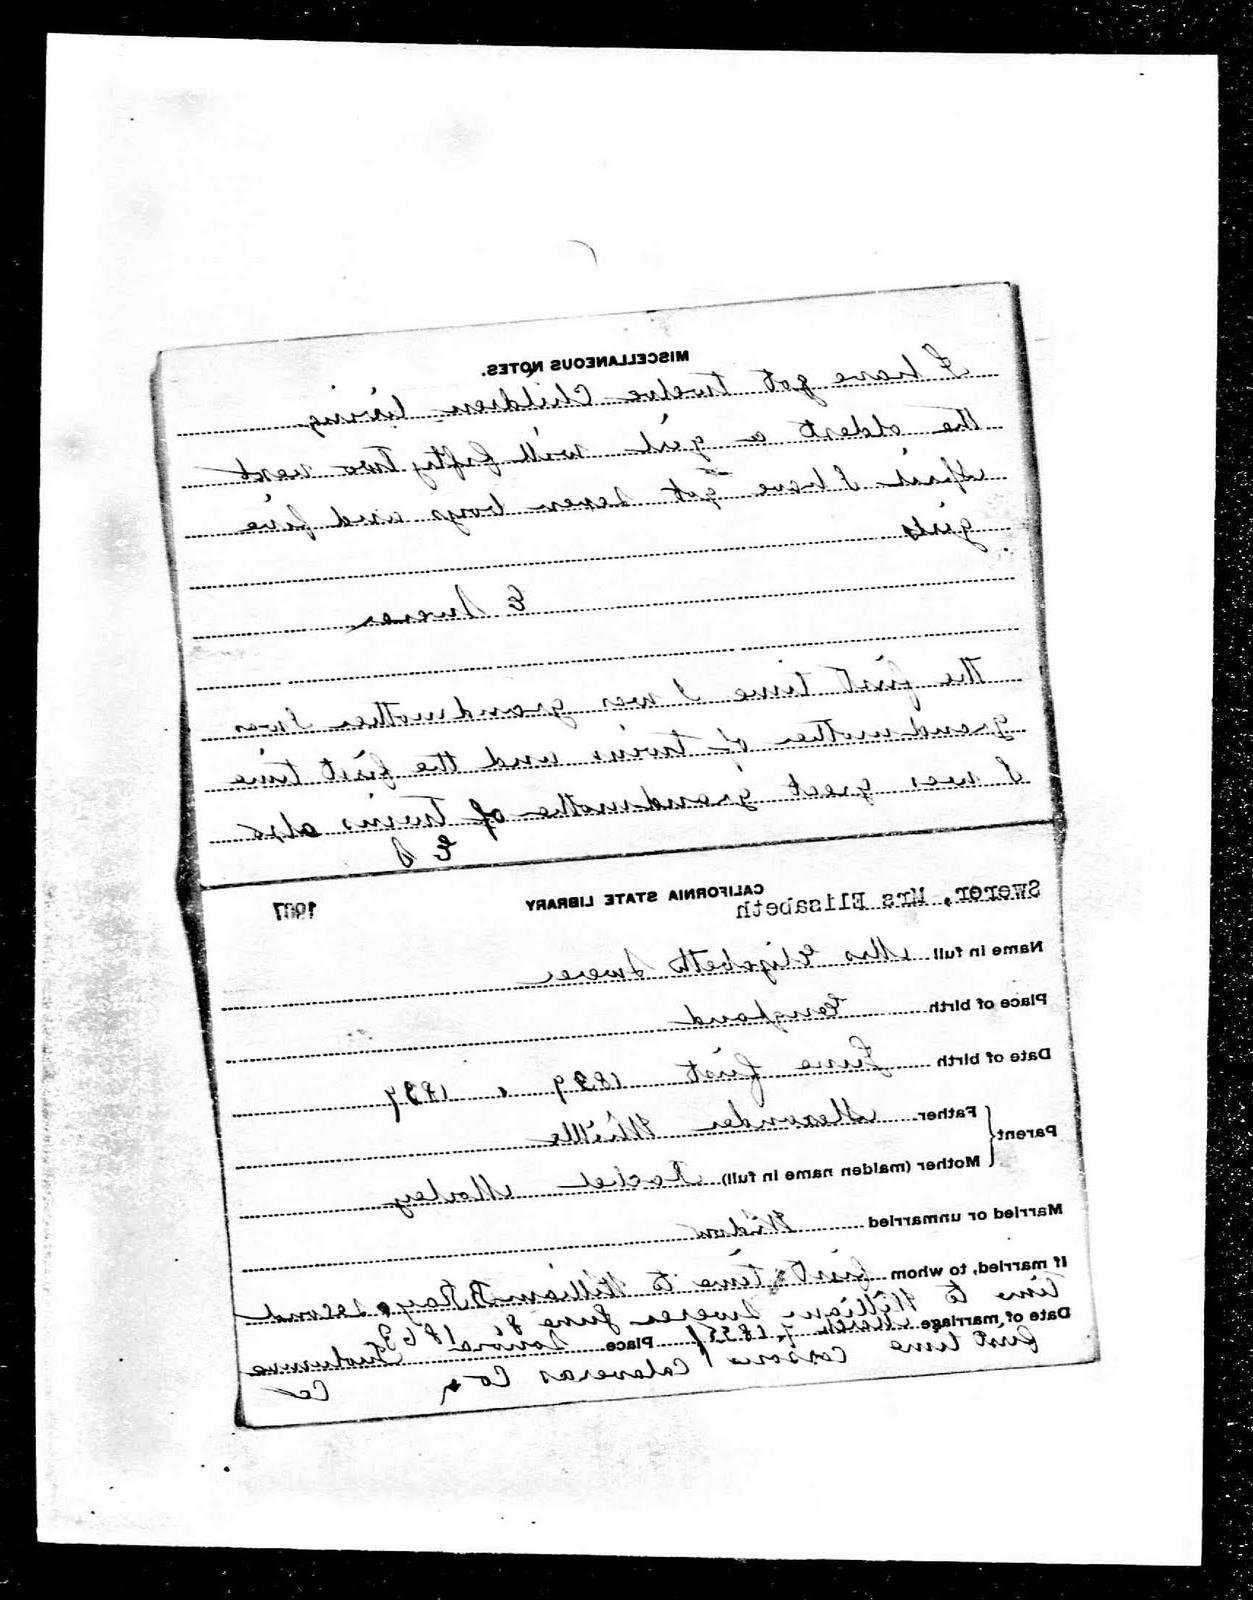 MISCELLANEOUS NOTES.
I have got twelve Children living
the oldest a girl will fifty two next
I have got seven boys and five
girls
E Swerer
The first time I was grandmother I was
grandmother of twins and the first time
I was great grandmother of twins also
E S
CALIFORNIA STATE LIBRARY
1907
Swerer, Mrs Elisabeth
Name in full Mrs Elizabeth Swerer
Place of birth England
Date of birth June first 1839 1839
Parent
Father Alexander
Mother (maiden name in full) Rachel Morley
Married or unmarried Widow
If married, to whom first time to William B Ray second
time to William Swerer June 8 1863
Date of marriage March Place Sonora Tuolumne
first time Calaveras Co Co